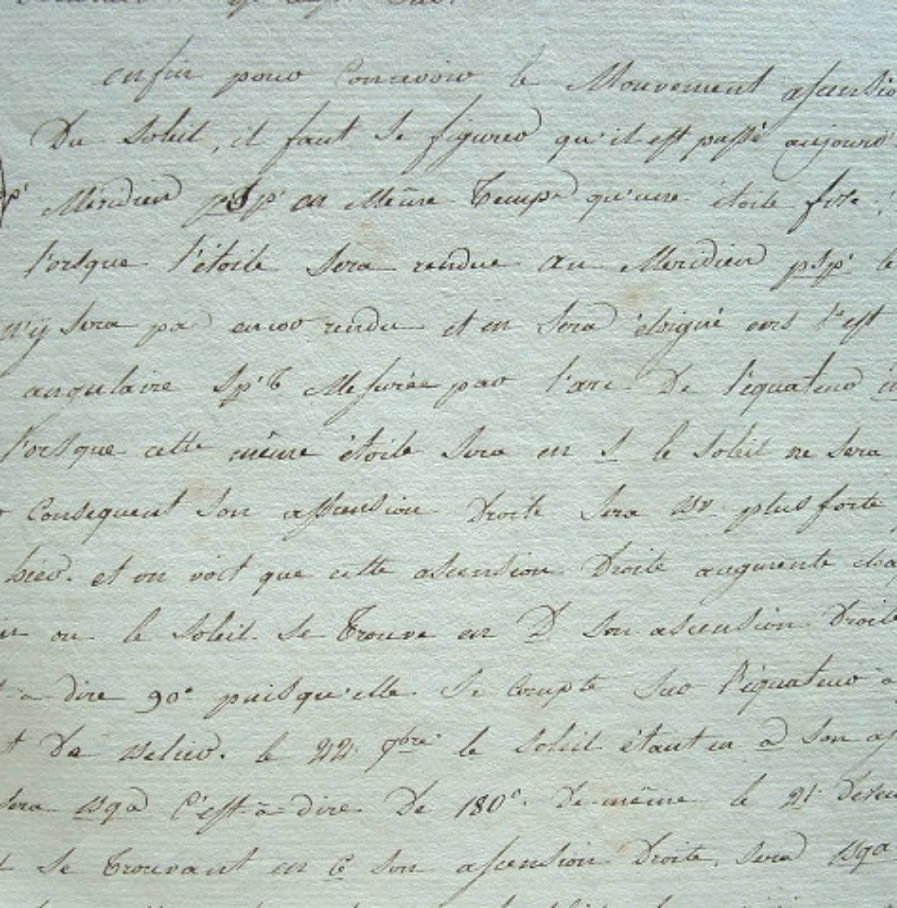 enfin pour Concevoir le Mouvement asçensio
Du Soleil, il faut se figurer qu'il est passé aujourd'
Meridien psp' en Même Temps qu'une étoile fixe,
lorsque l'étoile sera rendue au Meridien psp' le
n'y sera pas encor rendu et en sera éloigné vers l'est
angulaire Mesurée par l'arc De l'équateur
lorsque cette même étoile sera en S le Soleil ne sera
Consequent son assension Droite sera plus forte
hier. et on voit que cette asension Droite augmente cha
ou le Soleil se Trouve en D son asension Droite
à dire 90° puisqu'elle se compte sur l'équateur
De le 22 7bre le Soleil étant en a son as
sera C'est-à-dire De 180°. De même le 21 Decem
se Trouvant en C son asçension Droite, sera